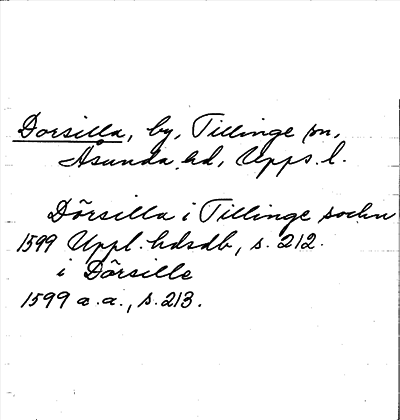 Dorsilla, by, Tillinge sn,
Åsunda hd, Upps. l.
Dörsilla i Tillinge sochn
1599 Uppl. hdsdb, s. 212.
i Dörsille
1599 a.a., s. 213.